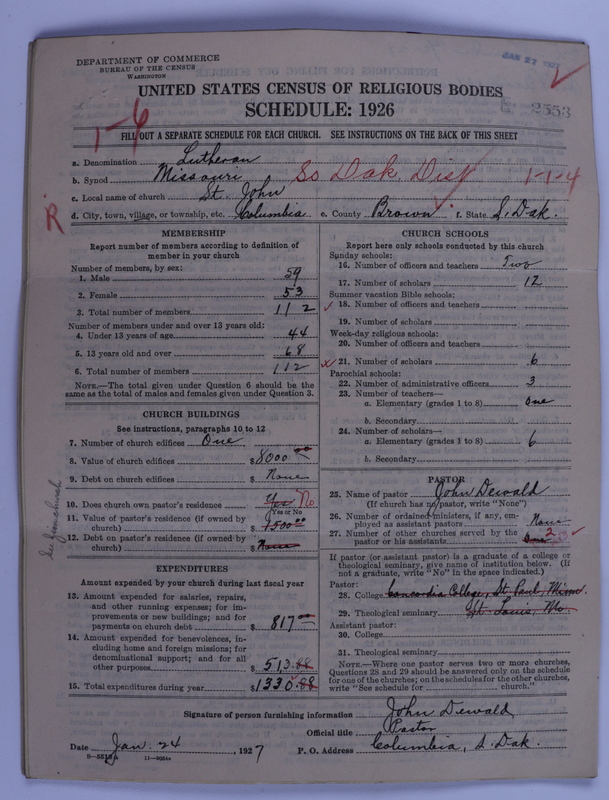 DEPARTMENT OF COMMERCE
BUREAU OF THE CENSUS
WASHINGTON
JAN 27 1927
UNITED STATES CENSUS OF RELIGIOUS BODIES
SCHEDULE: 1926
2553
1-6
FILL OUT A SEPARATE SCHEDULE FOR EACH CHURCH. SEE INSTRUCTIONS ON THE BACK OF THIS SHEET
a. Denomination Lutheran
b. Synod Missouri So Dak. Dist 1-1-4
c. Local name of church St. John
R
d. City, town, village, or township, etc. Columbia e. County Brown f. State S. Dak.
MEMBERSHIP
Report number of members according to definition of
member in your church
Number of members, by sex:
1. Male 59
2. Female 53
3. Total number of members 112
Number of members under and over 13 years old:
4. Under 13 years of age 44
5. 13 years old and over 68
6. Total number of members 112
NOTE.—The total given under Question 6 should be the
same as the total of males and females given under Question 3.
CHURCH BUILDINGS
See instructions, paragraphs 10 to 12
7. Number of church edifices One
8. Value of church edifices $8000.00
9. Debt on church edifices $ None
10. Does church own pastor's residence Yes No
Yes or No
11. Value of pastor's residence (if owned by
church) $1500.00
12. Debt on pastor's residence (if owned by
church) $ None
EXPENDITURES
Amount expended by your church during last fiscal year
13. Amount expended for salaries, repairs,
and other running expenses; for im-
provements or new buildings; and for
payments on church debt $ 817.00
14. Amount expended for benevolences, in-
cluding home and foreign missions; for
denominational support; and for all
other purposes $ 513.88
15. Total expenditures during year $1330.88
CHURCH SCHOOLS
Report here only schools conducted by this church
Sunday schools:
16. Number of officers and teachers Two
17. Number of scholars 12
Summer vacation Bible schools:
18. Number of officers and teachers
19. Number of scholars
Week-day religious schools:
20. Number of officers and teachers
21. Number of scholars 6
Parochial schools:
22. Number of administrative officers 3
23. Number of teachers—
a. Elementary (grades 1 to 8) One
b. Secondary
24. Number of scholars—
a. Elementary (grades 1 to 8) 6
b. Secondary
PASTOR
25. Name of pastor John Dewald
(If church has no pastor, write "None")
26. Number of ordained ministers, if any, em-
ployed as assistant pastors None
27. Number of other churches served by the
pastor or his assistants 2
If pastor (or assistant pastor) is a graduate of a college or
theological seminary, give name of institution below. (If
not a graduate, write "No" in the space indicated.)
Pastor:
28. College Concordia College, St. Paul, Minn.
29. Theological seminary St. Louis, Mo.
Assistant pastor:
30. College
31. Theological seminary
NOTE.—Where one pastor serves two or more churches,
Questions 28 and 29 should be answered only on the schedule
for one of the churches; on the schedules for the other churches,
write "See schedule for church."
Signature of person furnishing information John Dewald
Official title Pastor
Date Jan. 24, 1927 P. O. Address Columbia, S. Dak.